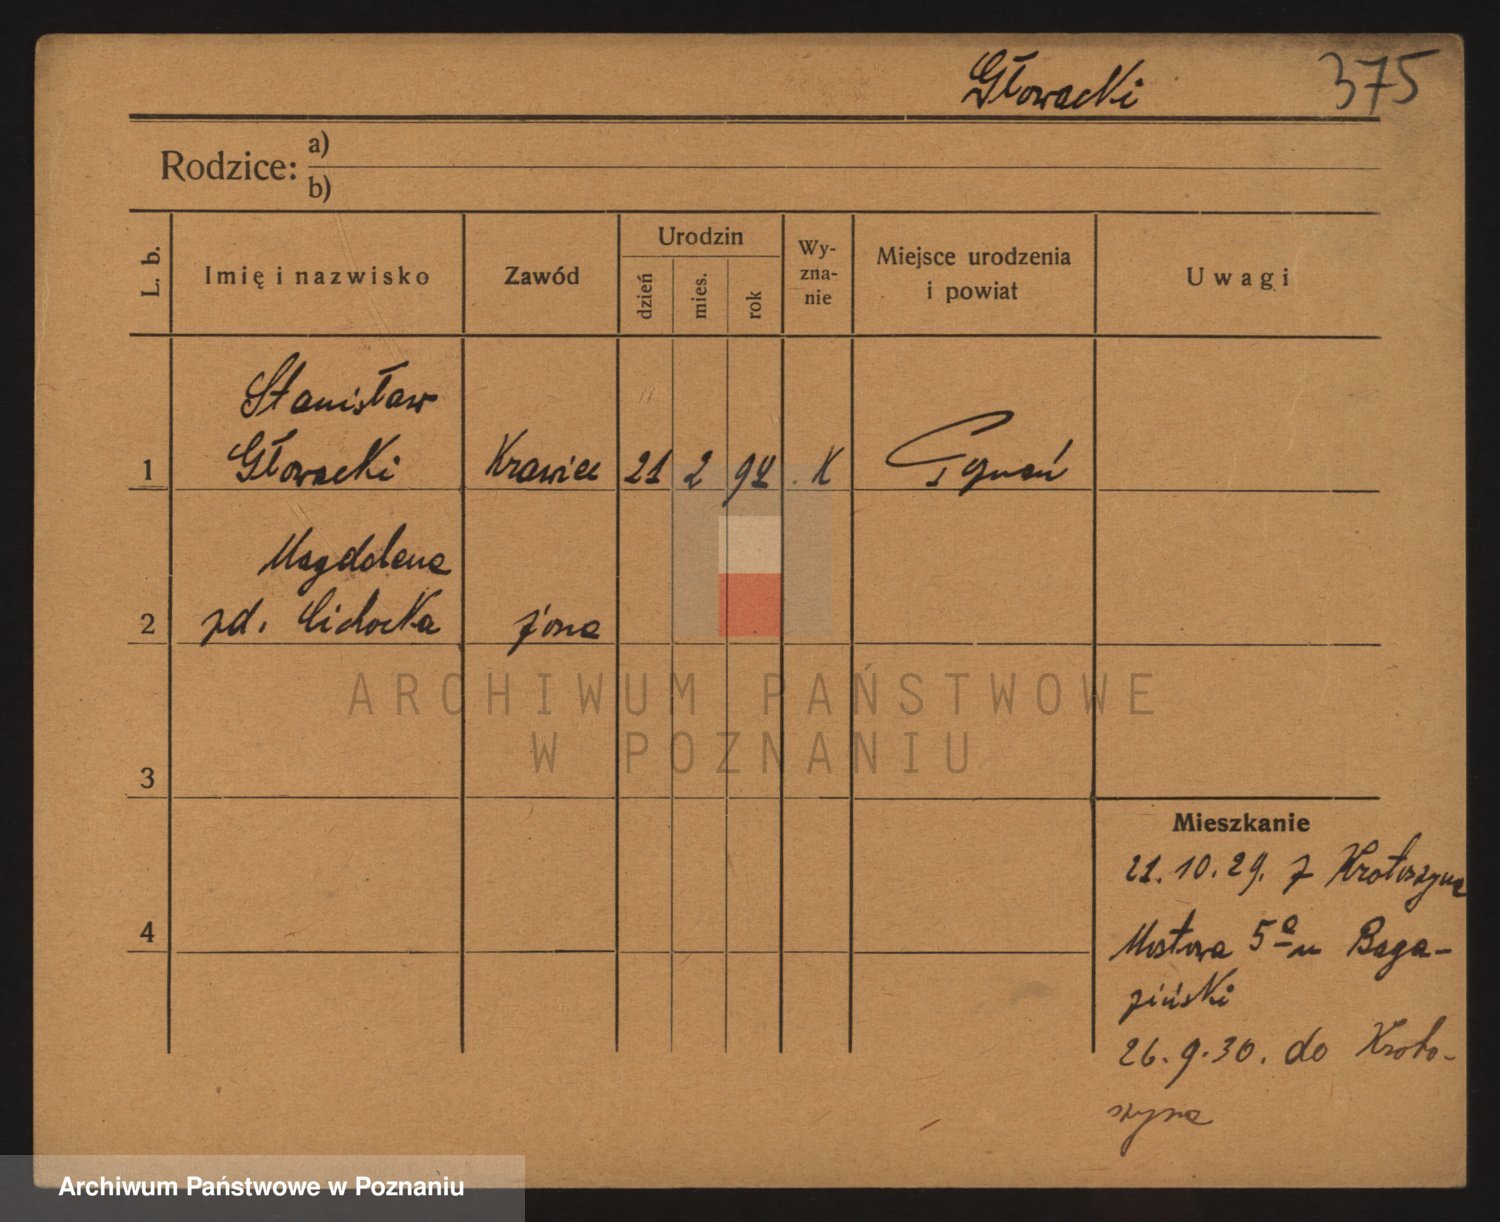 Głowacki 375
Rodzice: a)
b)
L. b. Imię i nazwisko Zawód Urodzin dzień mies. rok Wy-zna-nie Miejsce urodzenia i powiat Uwagi
Stanisław
1 Głowacki Krawiec 21 2 94 K
Magdalena
2 zd. Cichocka żona
ARCHIWUM PAŃSTWOWE
W POZNANIU
3
Mieszkanie
21.10.29. z Krotoszyna
4
Mostowa 5a u Baga-
ziński
26.9.30. do Kroto-
szyna
Archiwum Państwowe w Poznaniu